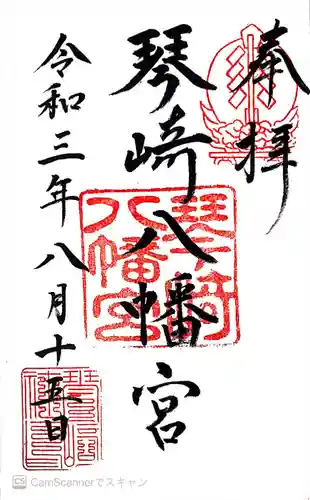 奉拝
琴崎八幡宮
令和三年八月十五日
琴崎
八幡宮
CS CamScannerでスキャン